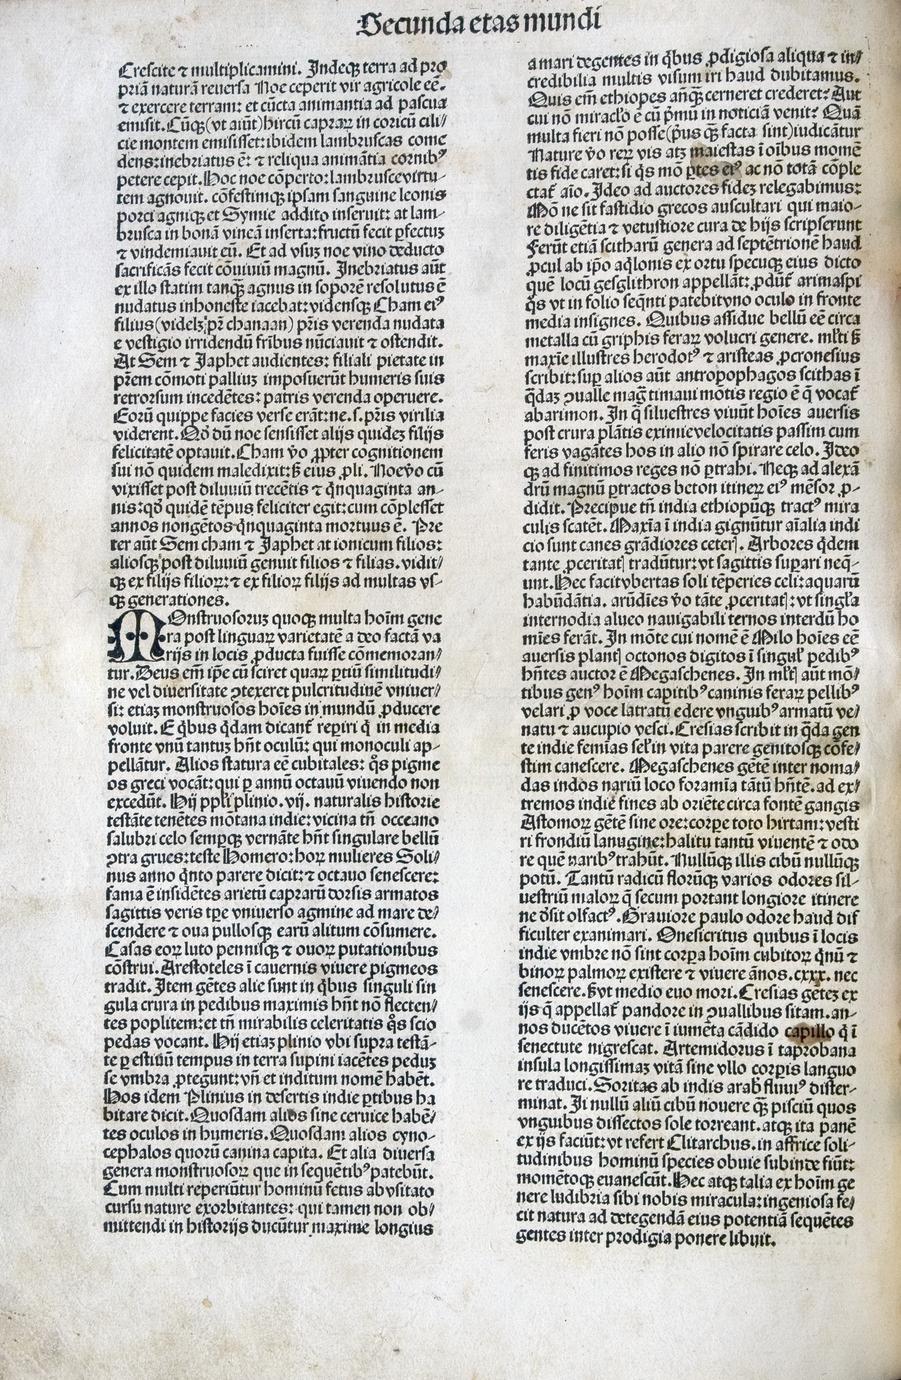 Secunda etas mundi
Crescite ⁊ multiplicamini. Indeqꝫ terra ad pro
priā naturā reuersa Noe ceperit vir agricole eē.
⁊ exercere terram: et cūcta animantia ad pascua
emisit. Cūqꝫ(vt aiūt)hircū capraꝝ in coricū cili/
cie montem emisisset: ibidem lambruscas come
dens: inebriatus ē: ⁊ reliqua animātia cornibꝰ
petere cepit. Hoc noe cōperto: lambrusce virtu-
tem agnouit. cōfestimqꝫ ipsam sanguine leonis
porci agniqꝫ et Symie addito inseruit: at lam-
brusca in bonā vineā inserta: fructū fecit ꝑfectuꝫ
⁊ vindemiauit cū. Et ad vsuꝫ noe vino deducto
sacrificās fecit cōuiuiū magnū. Inebriatus aūt
ex illo statim tanqꝫ agnus in soporē resolutus ē
nudatus inhoneste iacebat: vidensqꝫ Cham eiꝰ
filius(videlꝫ pr̄ chanaan) pr̄is verenda nudata
e vestigio irridendū fr̄ibus nūciauit ⁊ ostendit.
At Sem ⁊ Japhet audientes: filiali pietate in
pr̄em cōmoti palliuꝫ imposuerūt humeris suis
retrorsum incedētes: patris verenda operuere.
Eorū quippe facies verse erāt: ne .s. pr̄is virilia
viderent. Qō dū noe sensisset alijs quidez filijs
felicitatē optauit. Cham v̄o ꝓpter cognitionem
sui nō quidem maledixit: ꝭ eius ꝓli. Noe v̄o cū
vixisset post diluuiū trecētis ⁊ qn̄quaginta an-
nis: qō quidē tēpus feliciter egit: cum cōplesset
annos nongētos qn̄quaginta mortuus ē. Pre
ter aūt Sem cham ⁊ Japhet at ionicum filios:
aliosqꝫ post diluuiū genuit filios ⁊ filias. vidit/
qꝫ ex filijs filioꝝ: ⁊ ex filioꝝ filijs ad multas vs-
qꝫ generationes.
Monstruosoruꝫ quoqꝫ multa hoīm gene
ra post linguaꝝ varietatē a deo factā va
rijs in locis ꝓducta fuisse cōmemoran/
tur. Deus em̄ ip̄e cū sciret quaꝝ ꝑtiū similitudi/
ne vel diuersitate ꝯtexeret pulcritudinē vniuer/
si: etiaꝫ monstruosos hoīes in mundū ꝓducere
voluit. E q̄bus q̄dam dicanť reꝑiri q̄ in media
fronte vnū tantuꝫ hn̄t oculū: qui monoculi ap-
pellātur. Alios statura eē cubitales: q̄s pigme
os greci vocāt: qui ꝑ annū octauū viuendo non
excedūt. Hij pplī plinio .vij. naturalis historie
testāte tenētes mōtana indie: vicina tn̄ occeano
salubri celo semꝑqꝫ vernāte hn̄t singulare bellū
ꝯtra grues: teste Homero: hoꝝ mulieres Soli/
nus anno q̄nto parere dicit: ⁊ octauo senescere:
fama ē insidētes arietū caprarū dorsis armatos
sagittis veris tꝑe vniuerso agmine ad mare de/
scendere ⁊ oua pullosqꝫ earū alitum cōsumere.
Casas eoꝝ luto pennisqꝫ ⁊ ouoꝝ putationibus
cōstrui. Arestoteles ī cauernis viuere pigmeos
tradit. Item gētes alie sunt in q̄bus singuli sin
gula crura in pedibus maximis hn̄t nō flecten/
tes poplitem: et tn̄ mirabilis celeritatis q̄s scio
pedas vocant. Hij etiaꝫ plinio vbi supra testā-
te ꝑ estiuū tempus in terra supini iacētes peduꝫ
se vmbra ꝓtegunt: vn̄ et inditum nomē habēt.
Hos idem Plinius in desertis indie ꝑtibus ha
bitare dicit. Quosdam alios sine ceruice habē/
tes oculos in humeris. Quosdam alios cyno-
cephalos quorū canina capita. Et alia diuersa
genera monstruosoꝝ que in sequētibꝰ patebūt.
Cum multi reperiūtur hominū fetus ab vsitato
cursu nature exorbitantes: qui tamen non ob/
mittendi in historijs ducūtur maxime longius
a mari degentes in q̄bus ꝓdigiosa aliqua ⁊ in/
credibilia multis visum iri haud dubitamus.
Quis em̄ ethiopes anq̄ꝫ cerneret crederet: Aut
cui nō miracl̄o ē cū pͥmū in noticiā venit: Quā
multa fieri nō posse(pͥus q̄ꝫ facta sint)iudicātur
Nature v̄o reꝝ vis atꝫ maiestas ī oībus momē
tis fide caret: si q̄s mō ꝑtes eiꝰ ac nō totā cōple
ctať aīo. Ideo ad auctores fideꝫ relegabimus:
Mō ne sit fastidio grecos auscultari qui maio-
re diligētia ⁊ vetustiore cura de hijs scripserunt
Ferūt etiā scitharū genera ad septētrionē haud
ꝓcul ab ip̄o aq̄lonis ex ortu specuqꝫ eius dicto
quē locū gesglithron appellāt: ꝓdūť arimaspi
q̄s vt in folio seq̄nti patebit vno oculo in fronte
media insignes. Quibus assidue bellū eē circa
metalla cū griphis feraꝝ volucri genere. ml̄ti ꝭ
maxīe illustres herodotꝰ ⁊ aristeas ꝓcronesius
scribit: suꝑ alios aūt antropophagos scithas ī
q̄daꝫ ꝯualle mag̅ timaui mōtis regio ē q̄ vocať
abarimon. In q̄ siluestres viuūt hoīes auersis
post crura plātis eximie velocitatis passim cum
feris vagātes hos in alio nō spirare celo. Ideo
qꝫ ad finitimos reges nō ꝑtrahi. Neqꝫ ad alexā
drū magnū ꝑtractos beton itineꝝ eiꝰ mēsor ꝓ-
didit. Precipue tn̄ india ethiopūqꝫ tractꝰ mira
culis scatēt. Maxīa ī india gignūtur aīalia indi
cio sunt canes grādiores ceterꝭ. Arbores q̄dem
tante ꝓceritatꝭ tradūtur: vt sagittis suꝑari neq̄-
unt. Hec facit vbertas soli tēperies celi: aquarū
habūdātia. arūdīes v̄o tāte ꝓceritatꝭ: vt singl̄a
internodia alueo nauigabili ternos interdū ho
mīes ferāt. In mōte cui nomē ē Milo hoīes eē
auersis plantꝭ octonos digitos ī singul̄ pedibꝰ
hn̄tes auctor ē Megaschenes. In ml̄tꝭ aūt mō/
tibus genꝰ hoīm capitibꝰ caninis feraꝝ pellibꝰ
velari ꝓ voce latratū edere vnguibꝰ armatū ve/
natu ⁊ aucupio vesci. Cresias scribit in q̄da gen
te indie femīas sel̄ in vita parere genitosqꝫ cōfe/
stim canescere. Megaschenes gētē inter noma/
das indos nariū loco foramīa tātū hn̄tē. ad ex/
tremos indie fines ab oriēte circa fontē gangis
Astomoꝝ gētē sine ore: corꝑe toto hirtam: vesti
ri frondiū lanugine: halitu tantū viuentē ⁊ odo
re quē naribꝰ trahūt. Nullūqꝫ illis cibū nullūqꝫ
potū. Tantū radicū florūqꝫ varios odores sil-
uestriū maloꝝ q̄ secum portant longiore itinere
ne d̄sit olfactꝰ. Grauiore paulo odore haud dif
ficulter exanimari. Onesicritus quibus ī locis
indie vmbre nō sint corꝑa hoīm cubitoꝝ q̄nū ⁊
binoꝝ palmoꝝ existere ⁊ viuere ānos .cxxx. nec
senescere. ꝭ vt medio euo mori. Cresias gētez ex
ijs q̄ appellať pandore in ꝯuallibus sitam. an-
nos ducētos viuere ī iumēta cādido capillo q̄ ī
senectute nigrescat. Artemidorus ī taprobana
insula longissimaꝫ vitā sine vllo corꝑis languo
re traduci. Soritas ab indis arab̄ fluuiꝰ dister-
minat. Ii nullū aliū cibū nouere q̄ꝫ pisciū quos
vnguibus dissectos sole torreant. atqꝫ ita panē
ex ijs faciūt: vt refert Clitarchus. in affrice soli-
tudinibus hominū species obuie subinde fiūt:
momētoqꝫ euanescūt. Hec atqꝫ talia ex hoīm ge
nere ludibria sibi nobis miracula: ingeniosa fe/
cit natura ad detegendā eius potentiā sequētes
gentes inter prodigia ponere libuit.